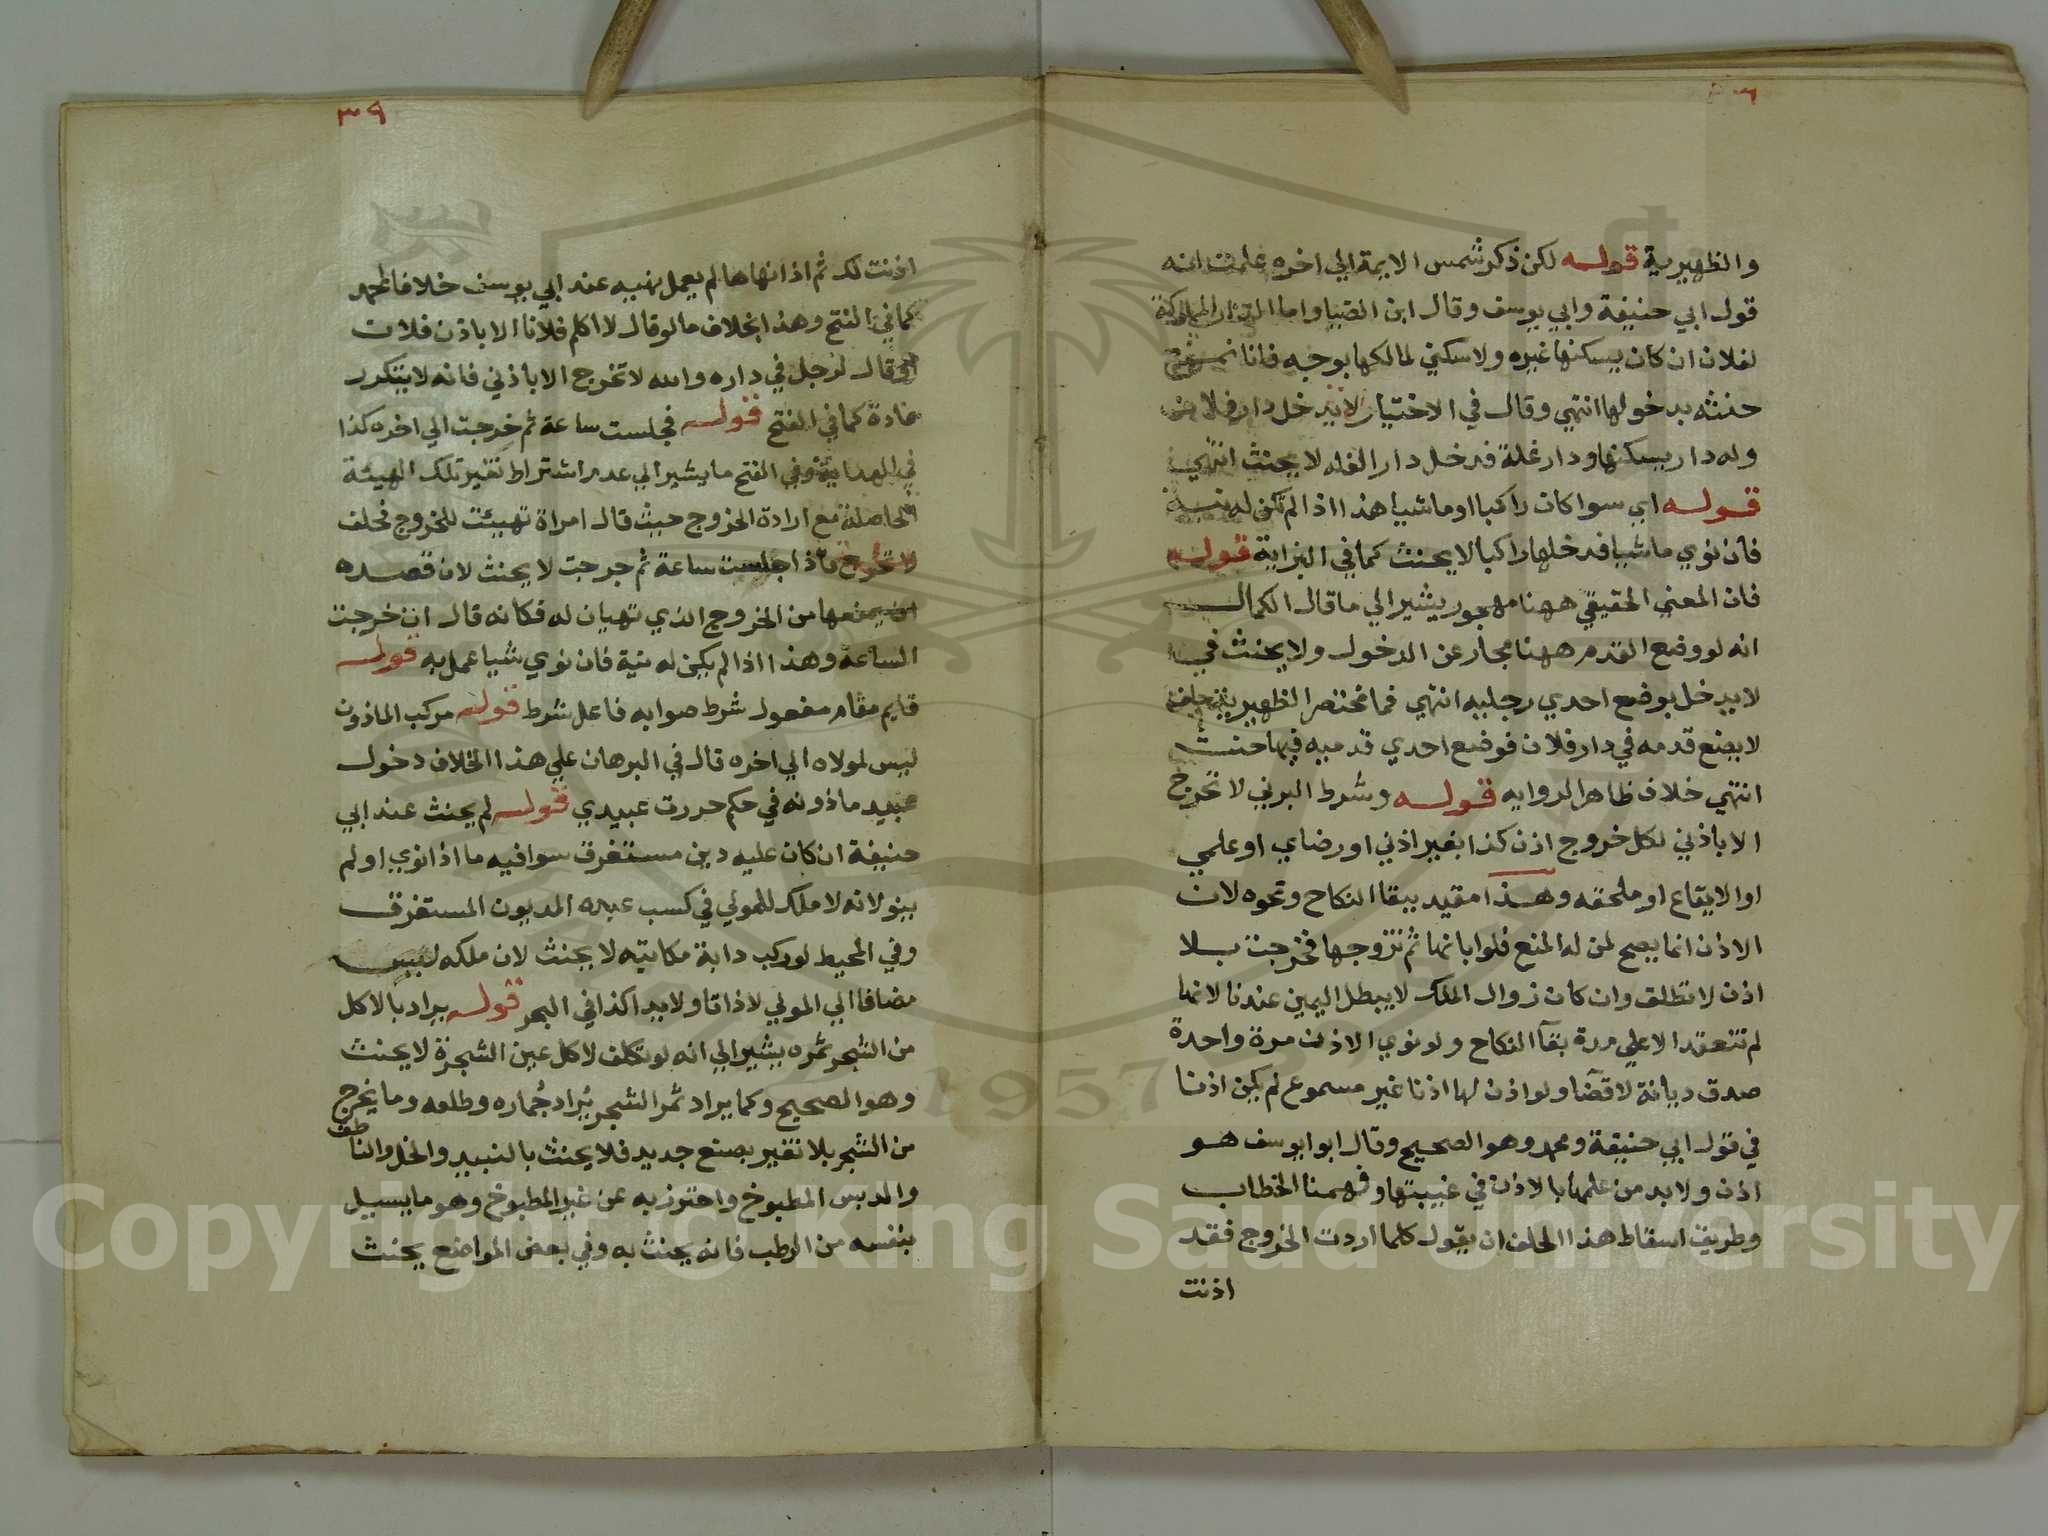 والظهيرية قوله لكن ذكر شمس الايمة الي اخره علمت انه
قول ابي حنيفة وابي يوسف وقال ابن الضيا واما الدار المملوكة
لفلان ان كان يسكنها غيره ولا سكني لمالكها بوجه فانا
حنثه بدخولها انتهي وقال في الاختيار لا يدخل دار فلان
وله دار يسكنها ودار غلة فدخل دار الغله لا يحنث انتهي
قوله اي سوا كان راكبا او ماشيا هذا اذا لم تكن له نية
فان نوي ماشيا فدخلها راكبا لا يحنث كما في البزازية قوله
فان المعني الحقيقي ههنا مهجور يشير الي ما قال الكمال
انه لو وضع القدم ههنا مجاز عن الدخول ولا يحنث في
لا يدخل بوضع احدي رجليه انتهي فما في مختصر الظهيرية حلف
لا يضع قدمه في دار فلان فوضع احدي قدميه فيها حنث
انتهي خلاف ظاهر الروايه قوله وشرط البر في لا تخرج
الا باذني لكل خروج اذن كذا بغير اذني او رضاي او علمي
اوالايقاع او ملحقه وهذا مقيد ببقا النكاح ونحوه لان
الاذن انما يصح لمن له المنع فلو ابانها ثم تزوجها فخرجت بلا
اذن لا تطلق وان كان زوال الملك لا يبطل اليمين عندنا لانها
لم تنعقد الا علي مدة بقآ النكاح ولو نوي الاذن مرة واحدة
صدق ديانة لا قضآ ولو اذن لها اذنا غير مسموع لم يكن اذنا
في قول ابي حنيفة ومحمد وهو الصحيح وقال ابوايوسف هو
اذن ولا بد من علمها بالاذن في غيبتها وفهمنا الخطاب
وطريق اسقاط هذا الحلف ان يقول كلما اردت الخروج فقد
اذنت
٣٩
اذنت لك ثم اذا نهاها لم يعمل نهيه عند ابي يوسف خلافا لمحمد
كما في الفتح وهذا بخلاف ما لو قال لا اكلم فلانا الا باذن فلان
او قال لرجل في داره والله لا تخرج الا باذني فانه لا يتكرر
عادة كما في الفتح قوله فجلست ساعة ثم خرجت الي اخره كذا
في الهداية وفي الفتح ما يشير الي عدم اشتراط تغير تلك الهيئة
الحاصلة مع ارادة الخروج حيث قال امراة تهيئت للخروج فحلف
لا تخرج فاذا جلست ساعة ثم خرجت لا يحنث لان قصده
ان يمنعها من الخروج الذي تهيان له فكانه قال ان خرجت
الساعة وهذا اذا لم يكن له نية فان نوي شيا عمل به قوله
قايم مقام مفعول شرط صوابه فاعل شرط قوله مركب الماذون
ليس لمولاه الي اخره قال في البرهان علي هذا الخلاف دخول
عبيد ماذونه في حكم حررت عبيدي قوله لم يحنث عند ابي
حنيفة ان كان عليه دين مستغرق سوا فيه ما اذا نوي او لم
ينو لانه لا ملك للمولي في كسب عبده المديون المستغرق
وفي المحيط لو ركب دابة مكاتبه لا يحنث لان ملكه ليس
مضافا الي المولي لا ذاتا ولا يدا كذا في البحر قوله يراد بالاكل
من الشجر ثمره يشير الي انه لو تكلف لاكل عين الشجرة لا يحنث
وهو الصحيح وكما يراد ثمر الشجر يُراد جُماره وطلعه وما يخرج
من الشجر بلا تغير بصنع جديد فلا يحنث بالنبيد والخل والناطف
والدبس المطبوخ واحترز به عن غير المطبوخ وهو ما يسيل
بنفسه من الرطب فانه يحنث به وفي بعض المواضع يحنث
Copyright © King Saud University
1957